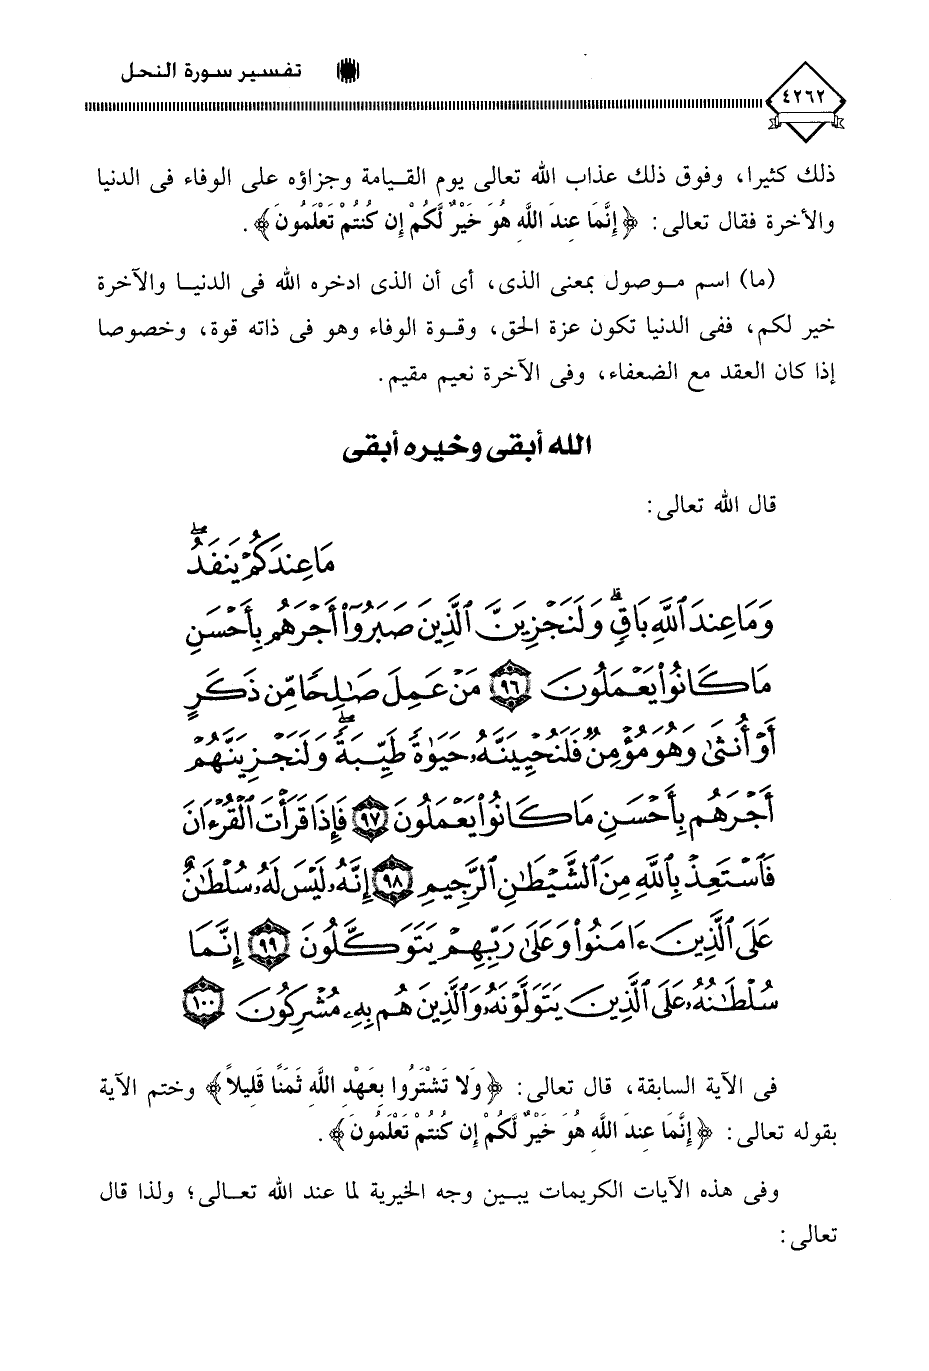 ٤٢٦٢
تفسير سورة النحل
ذلك كثيرا، وفوق ذلك عذاب الله تعالى يوم القيامة وجزاؤه على الوفاء فى الدنيا
والأخرة فقال تعالى: ﴿إِنَّمَا عِندَ اللَّهِ هُوَ خَيْرٌ لَّكُمْ إِن كُنتُمْ تَعْلَمُونَ﴾.
(ما) اسم موصول بمعنى الذى، أى أن الذى ادخره الله فى الدنيا والآخرة
خير لكم، ففى الدنيا تكون عزة الحق، وقوة الوفاء وهو فى ذاته قوة، وخصوصا
إذا كان العقد مع الضعفاء، وفى الآخرة نعيم مقيم.
الله أبقى وخيره أبقى
قال الله تعالى:
مَا عِندَكُمْ يَنفَدُ ۖ
وَمَا عِندَ ٱللَّهِ بَاقٍ ۗ وَلَنَجْزِيَنَّ ٱلَّذِينَ صَبَرُوٓا۟ أَجْرَهُم بِأَحْسَنِ
مَا كَانُوا۟ يَعْمَلُونَ ٩٦ مَنْ عَمِلَ صَـٰلِحًا مِّن ذَكَرٍ
أَوْ أُنثَىٰ وَهُوَ مُؤْمِنٌ فَلَنُحْيِيَنَّهُۥ حَيَوٰةً طَيِّبَةً ۖ وَلَنَجْزِيَنَّهُمْ
أَجْرَهُم بِأَحْسَنِ مَا كَانُوا۟ يَعْمَلُونَ ٩٧ فَإِذَا قَرَأْتَ ٱلْقُرْءَانَ
فَٱسْتَعِذْ بِٱللَّهِ مِنَ ٱلشَّيْطَـٰنِ ٱلرَّجِيمِ ٩٨ إِنَّهُۥ لَيْسَ لَهُۥ سُلْطَـٰنٌ
عَلَى ٱلَّذِينَ ءَامَنُوا۟ وَعَلَىٰ رَبِّهِمْ يَتَوَكَّلُونَ ٩٩ إِنَّمَا
سُلْطَـٰنُهُۥ عَلَى ٱلَّذِينَ يَتَوَلَّوْنَهُۥ وَٱلَّذِينَ هُم بِهِۦ مُشْرِكُونَ ١٠٠
فى الآية السابقة، قال تعالى: ﴿وَلا تَشْتَرُوا بِعَهْدِ اللَّهِ ثَمَنًا قَلِيلاً﴾ وختم الآية
بقوله تعالى: ﴿إِنَّمَا عِندَ اللَّهِ هُوَ خَيْرٌ لَّكُمْ إِن كُنتُمْ تَعْلَمُونَ﴾.
وفى هذه الآيات الكريمات يبين وجه الخيرية لما عند الله تعالى؛ ولذا قال
تعالى: